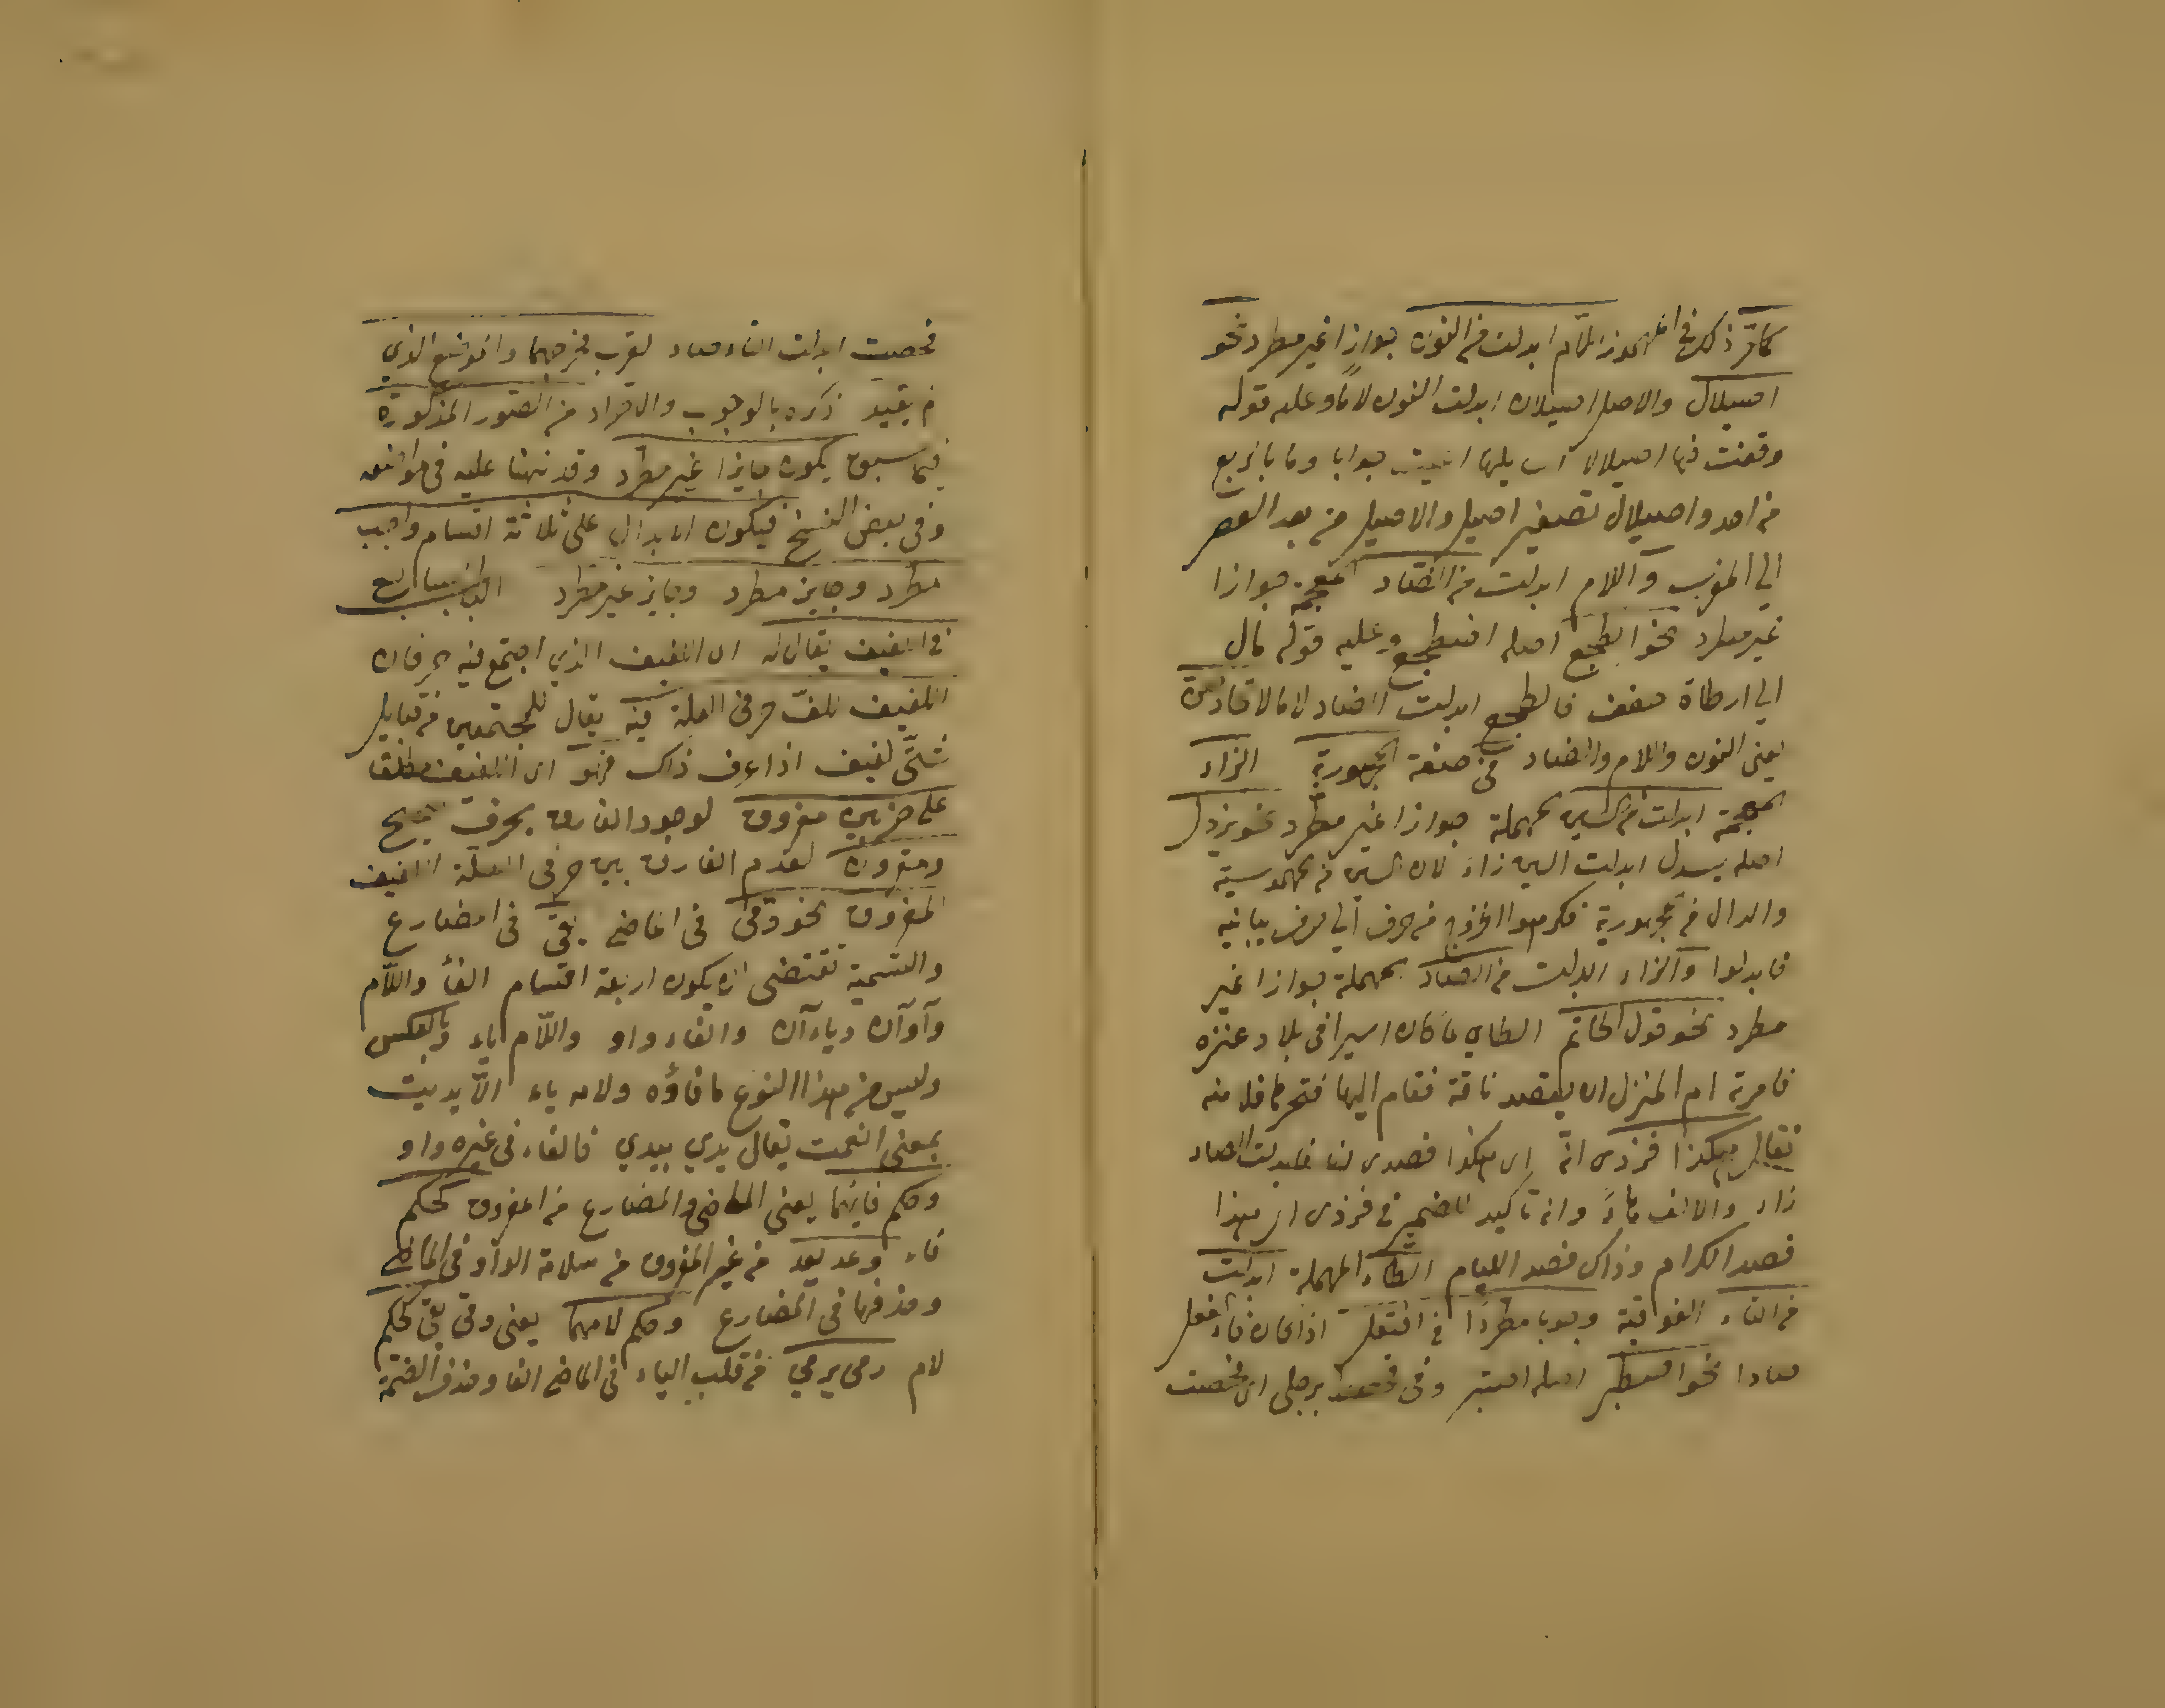 كما مر ذكره في المهموز اللام ابدلت من النون جوازا غير مطرد نحو
اصيلال والاصل اصيلان ابدلت النون لاما وعليه قوله
وقفت فيها اصيلالا اسايلها اعيت جوابا وما بالربع
من احد واصيلال تصغير اصيل والاصيل من بعد العصر
الي المغرب واللام ابدلت من الضاد المعجمة جوازا
غير مطرد نحو الطجع اصله اضطجع وعليه قوله مال
الي ارطاة حقف فالطجع ابدلت الضاد لاما لاتحادهن
يعني النون واللام والضاد في صفة المجهورية الزاء
المعجمة ابدلت من السين المهملة جوازا غير مطرد نحو يزدل
اصله يسدل ابدلت السين زاء لان السين من المهموسية
والدال من المجهورية فكرهوا الخروج من حرف الي حرف يباينه
فابدلوا والزاء ابدلت من الصاد المهملة جوازا غير
مطرد نحو قول الحاتم الطاي لما كان اسيرا في بلاد عنزه
فامرته ام المنزل ان يفصد ناقة فقام اليها فنحرها فلامنه
فقال هكذا فزدى انه اي هكذا فصدى لنا فابدلت الصاد
زاء والالف هاءً وانه تاكيد للضمير في فزدى اي هذا
فصد الكرام وذاك فصد الليام الطاء المهملة ابدلت
من التاء الفوقية وجوبا مطردًا في افتعل اذا كان فاء فعل
صادا نحو اصطبر اصله اصتبر وفي فحصط برجلي اي فحصت
فحصت ابدلت التاء صاد لقرب مخرجهما والموضع الذي
لم يقيد ذكره بالوجوب والاطراد من الصور المذكورة
فيما سبق يكون جايزا غير مطرد وقد نبهنا عليه في مواضعه
وفي بعض النسخ فيكون الابدال على ثلاثة اقسام واجب
مطرد وجايز مطرد وجايز غير مطرد الباب السابع
في اللفيف يقال له اى اللفيف الذي اجتمع فيه حرفان
اللفيف للفّ حرفى العلة فيه يقال للمجتمعين من قبايل
شتّى لفيف اذا عرف ذاك فهو اى اللفيف مطلقا
على ضربين مفروق لوجود الفارق بحرف صحيح
ومقرون لعدم الفارق بين حرفى العلة اللفيف
المفروق نحو وقى في الماضي يقي في المضارع
والقسمية تقتضى ان يكون اربعة اقسام الفأ واللّام
وآوآن وياءآن والفاء واو واللّام ياء وبالعكس
وليس من هذا النوع ما فاؤه ولامه ياء الّا يديت
بمعنى انعمت يقال يدي ييدي فالفاء في غيره واو
وحكم فايهما يعنى الماضي والمضارع من المفروق كحكم
فاء وعد يعد من غير المفروق من سلامة الواو في الماضي
وحذفها في المضارع وحكم لامهما يعنى وقى يقي كحكم
لام رمى يرمي من قلب الياء في الماضي الفا وحذف الضمة